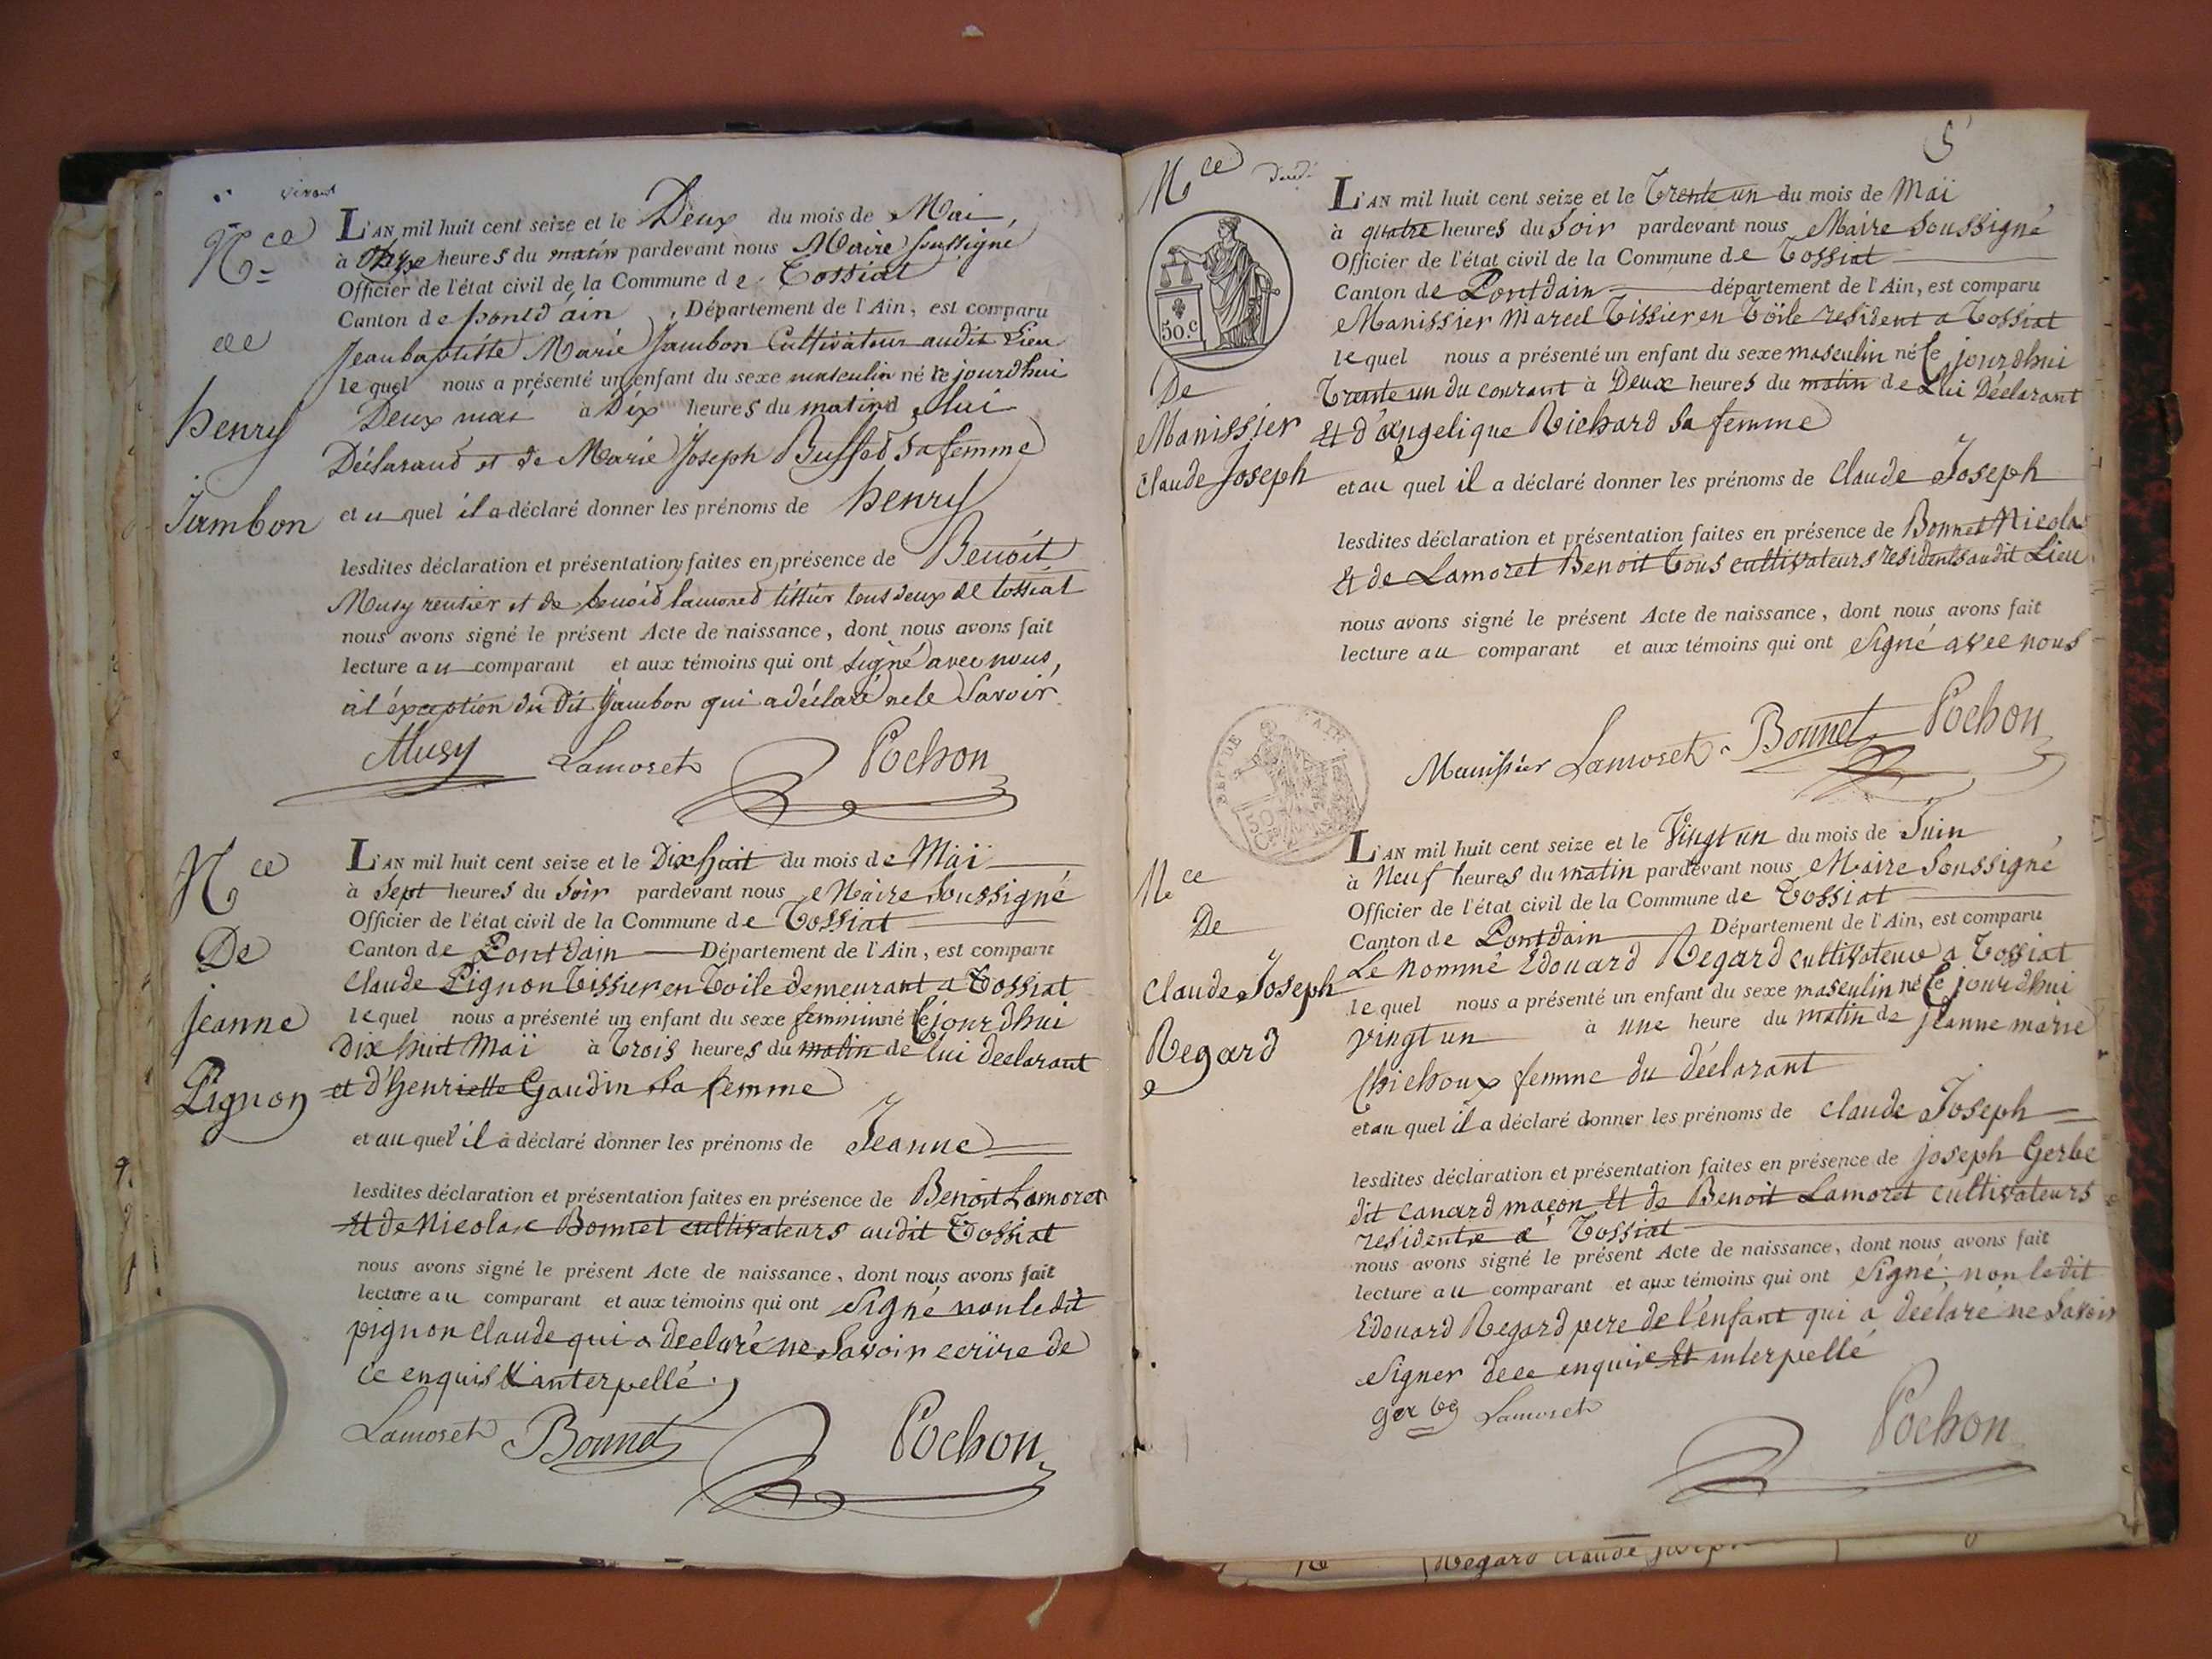 vivant
N.ce
de
henry
Jambon
L'AN mil huit cent seize et le Deux du mois de Mai,
à Onze heures du matin pardevant nous Maire soussigné
Officier de l'état civil de la Commune de Tossiat
Canton de pontd'ain, Département de l'Ain, est comparu
Jeanbaptiste Marie Jambon Cultivateur audit Lieu
lequel nous a présenté un enfant du sexe masculin né ce jourdhui
Deux mai à Dix heures du matin d lui
Déclarand et de Marie Joseph Buffed sa femme
et u quel il a déclaré donner les prénoms de henry
lesdites déclaration et présentation faites en présence de Benoit
Musy rentier et de benoid lamored tissier tous deux de tossiat
nous avons signé le présent Acte de naissance, dont nous avons fait
lecture au comparant et aux témoins qui ont signé avec nous,
à l'éxception du Dit Jambon qui a déclaré ne le Savoir
Musy Lamoret Pochon
N.ce
De
jeanne
Pignon
L'AN mil huit cent seize et le Dix huit du mois de Maï
à Sept heures du Soir pardevant nous Maire Soussigné
Officier de l'état civil de la Commune de Tossiat
Canton de Pontdain Département de l'Ain, est comparu
Claude Pignon Tissier en Toile demeurant a Tossiat
lequel nous a présenté un enfant du sexe féminin né Ce jourdhui
Dix huit Maï à Trois heures du matin de lui declarant
et d'henriette Gaudin Sa femme
et au quel il a déclaré donner les prénoms de Jeanne
lesdites déclaration et présentation faites en présence de Benoit Lamoret
Et de Nicolas Bonnet cultivateurs audit Tossiat
nous avons signé le présent Acte de naissance, dont nous avons fait
lecture au comparant et aux témoins qui ont Signé non le dit
pignon Claude qui a declaré ne Savoir ecrire de
ce enquis & interpellé.
Lamoret Bonnet Pochon
5
N.ce
50.c
De
Manissier
Claude Joseph
L'AN mil huit cent seize et le Trente un du mois de Maï
à quatre heures du Soir pardevant nous Maire Soussigné
Officier de l'état civil de la Commune de Tossiat
Canton de Pontdain département de l'Ain, est comparu
Manissier Marcel Tissier en Toïle resident a Tossiat
lequel nous a présenté un enfant du sexe masculin né Ce jourdhui
Trente un du courant à Deux heures du matin de Lui Déclarant
Et d'angelique Richard Sa femme
et au quel il a déclaré donner les prénoms de Claude Joseph
lesdites déclaration et présentation faites en présence de Bonnet Nicolas
Et de Lamoret Benoit Tous cultivateurs residents audit Lieu
nous avons signé le présent Acte de naissance, dont nous avons fait
lecture au comparant et aux témoins qui ont Signé avec nous
Manissier Lamoret Bonnet Pochon
DEPT DE AIN
50
N.ce
De
Claude Joseph
Regard
L'AN mil huit cent seize et le Vingt un du mois de Juin
à Neuf heures du matin pardevant nous Maire Soussigné
Officier de l'état civil de la Commune de Tossiat
Canton de Pontdain Département de l'Ain, est comparu
Le nommé Edouard Regard cultivateur a Tossiat
lequel nous a présenté un enfant du sexe masculin né Ce jourdhui
vingt un à une heure du matin de jeanne marie
Chichoux femme du déclarant
et au quel il a déclaré donner les prénoms de Claude Joseph
lesdites déclaration et présentation faites en présence de joseph Gerbe
dit canard maçon Et de Benoit Lamoret cultivateurs
residents a Tossiat
nous avons signé le présent Acte de naissance, dont nous avons fait
lecture au comparant et aux témoins qui ont Signé, non le dit
Edouard Regard pere de l'enfant qui a déclaré ne Savoir
Signer de ce enquis Et interpellé
Lamoret Pochon
Regard Claude joseph